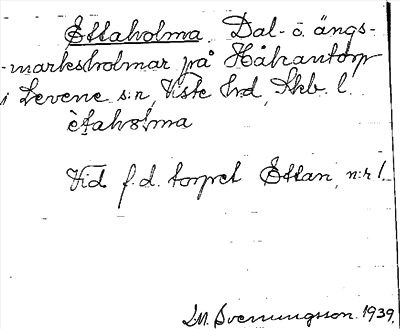 Ettaholma. Dal- o. ängs-
-marksholmar på Håkantorp
i Levene s:n, Viste hrd, Skb. l.
ètaholma
Vid f.d. torpet Ettan, n:r 1.
D.N. Svenungsson. 1939.